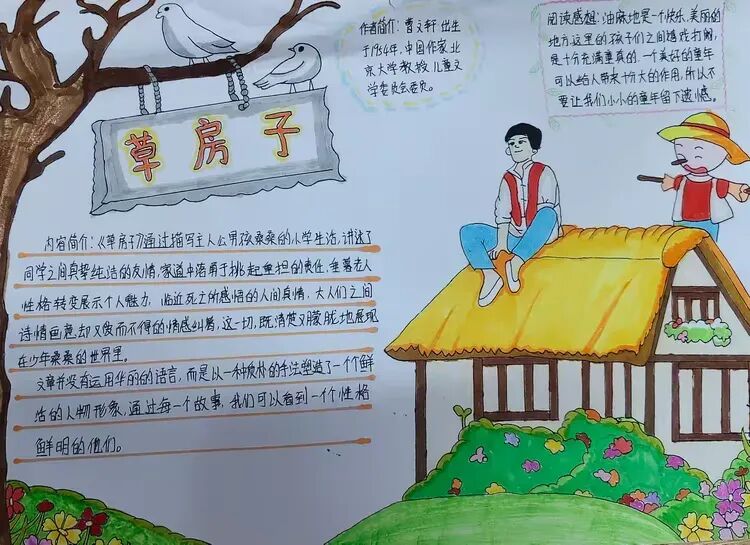 草房子
作者简介：曹文轩 出生
于1954年，中国作家北
京大学教授儿童文
学委员会委员。
阅读感想：油麻地是一个快乐、美丽的
地方，这里的孩子们之间嬉戏打闹，
是十分充满童真的，一个美好的童年
可以给人带来十分大的作用，所以不
要让我们小小的童年留下遗憾。
内容简介：《草房子》通过描写主人公男孩桑桑的小学生活，讲述了
同学之间真挚纯洁的友情，家道中落勇于挑起重担的责任，垂暮老人
性格转变展示个人魅力，临近死亡所感悟的人间真情，大人们之间
诗情画意却又求而不得的情感纠葛，这一切，既清楚又朦胧地展现
在少年桑桑的世界里。
文章并没有运用华丽的语言，而是以一种质朴的手法塑造了一个个鲜
活的人物形象，通过每一个故事，我们可以看到一个个性格
鲜明的他们。